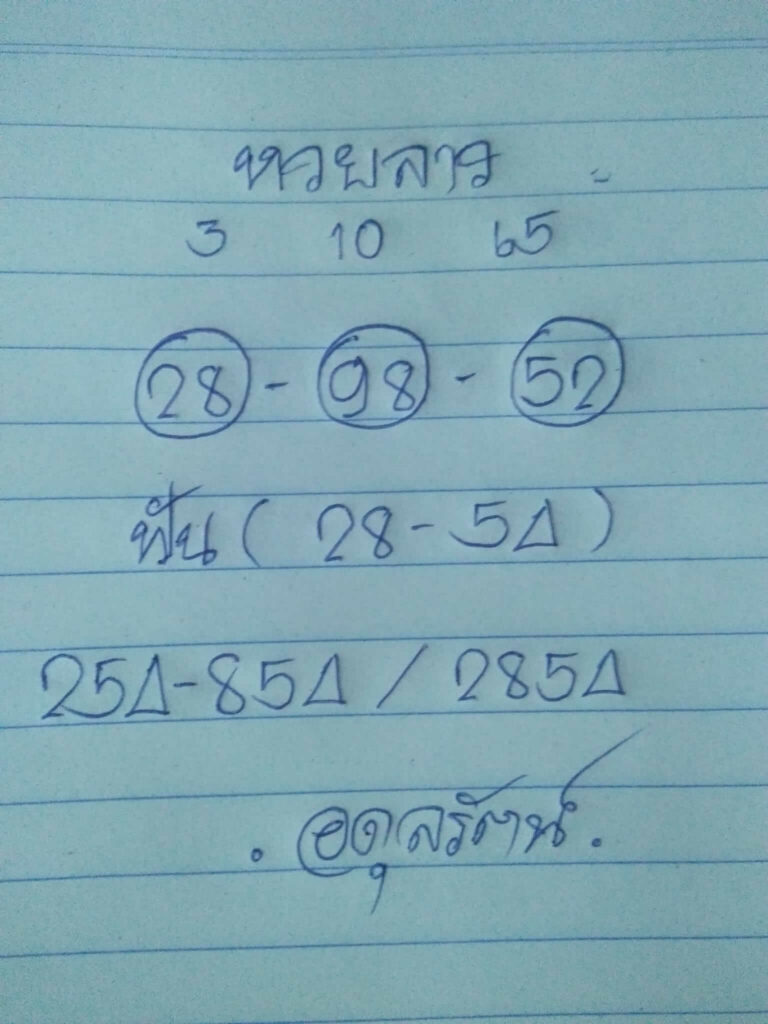 หวยลาว
3 10 65
28 - 98 - 52
ฟัน ( 28 - 5Δ )
25Δ-85Δ / 285Δ
. อดุลรัตน์ .